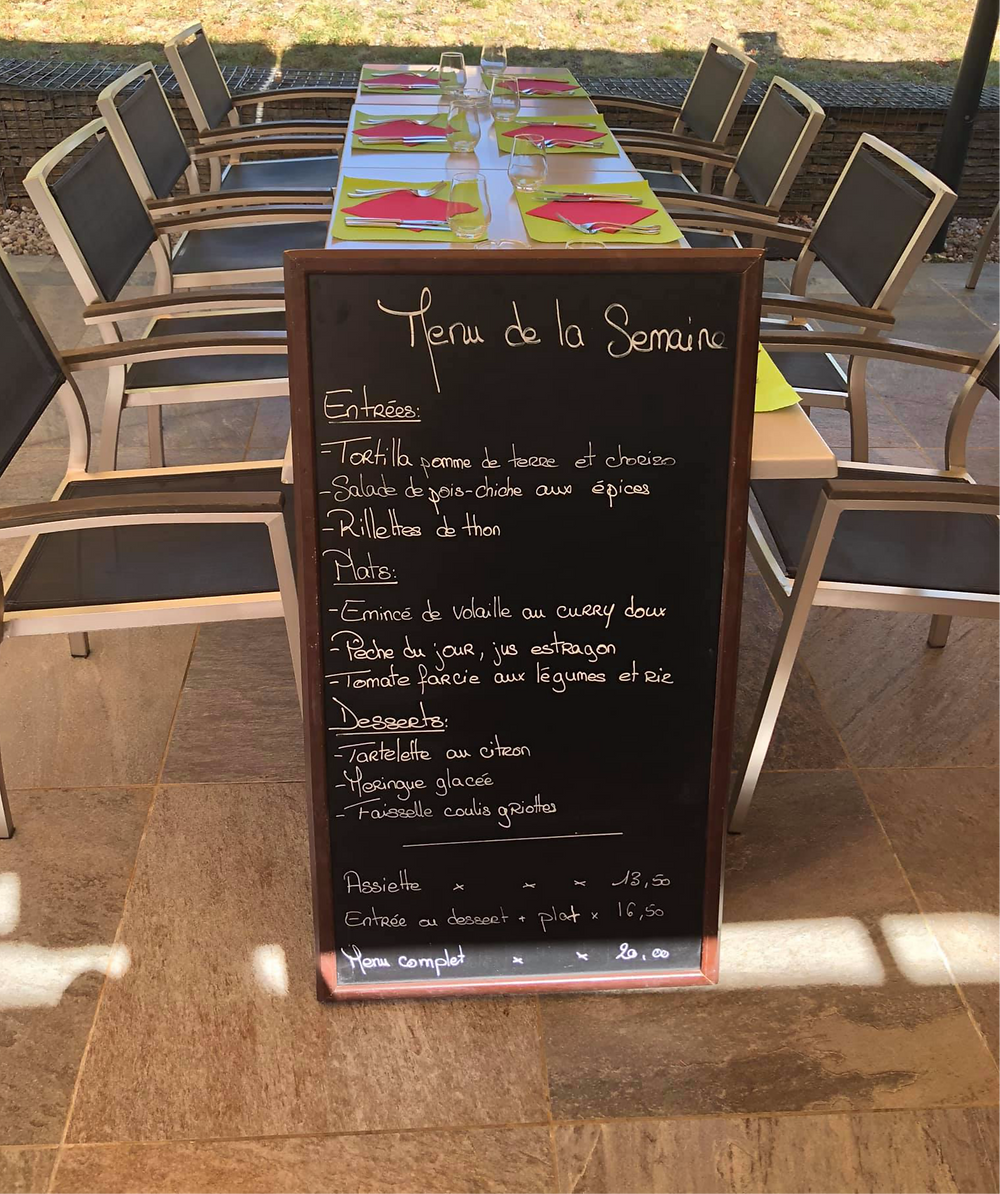 Menu de la Semaine
Entrées:
-Tortilla pomme de terre et chorizo
-Salade de pois-chiche aux épices
-Rillettes de thon
Plats:
-Emincé de volaille au curry doux
-Pêche du jour, jus estragon
-Tomate farcie aux légumes et riz
Desserts:
-Tartelette au citron
-Meringue glacée
-Faisselle coulis griottes
Assiette x x x 13,50
Entrée ou dessert + plat x 16,50
Menu complet x x 20,00